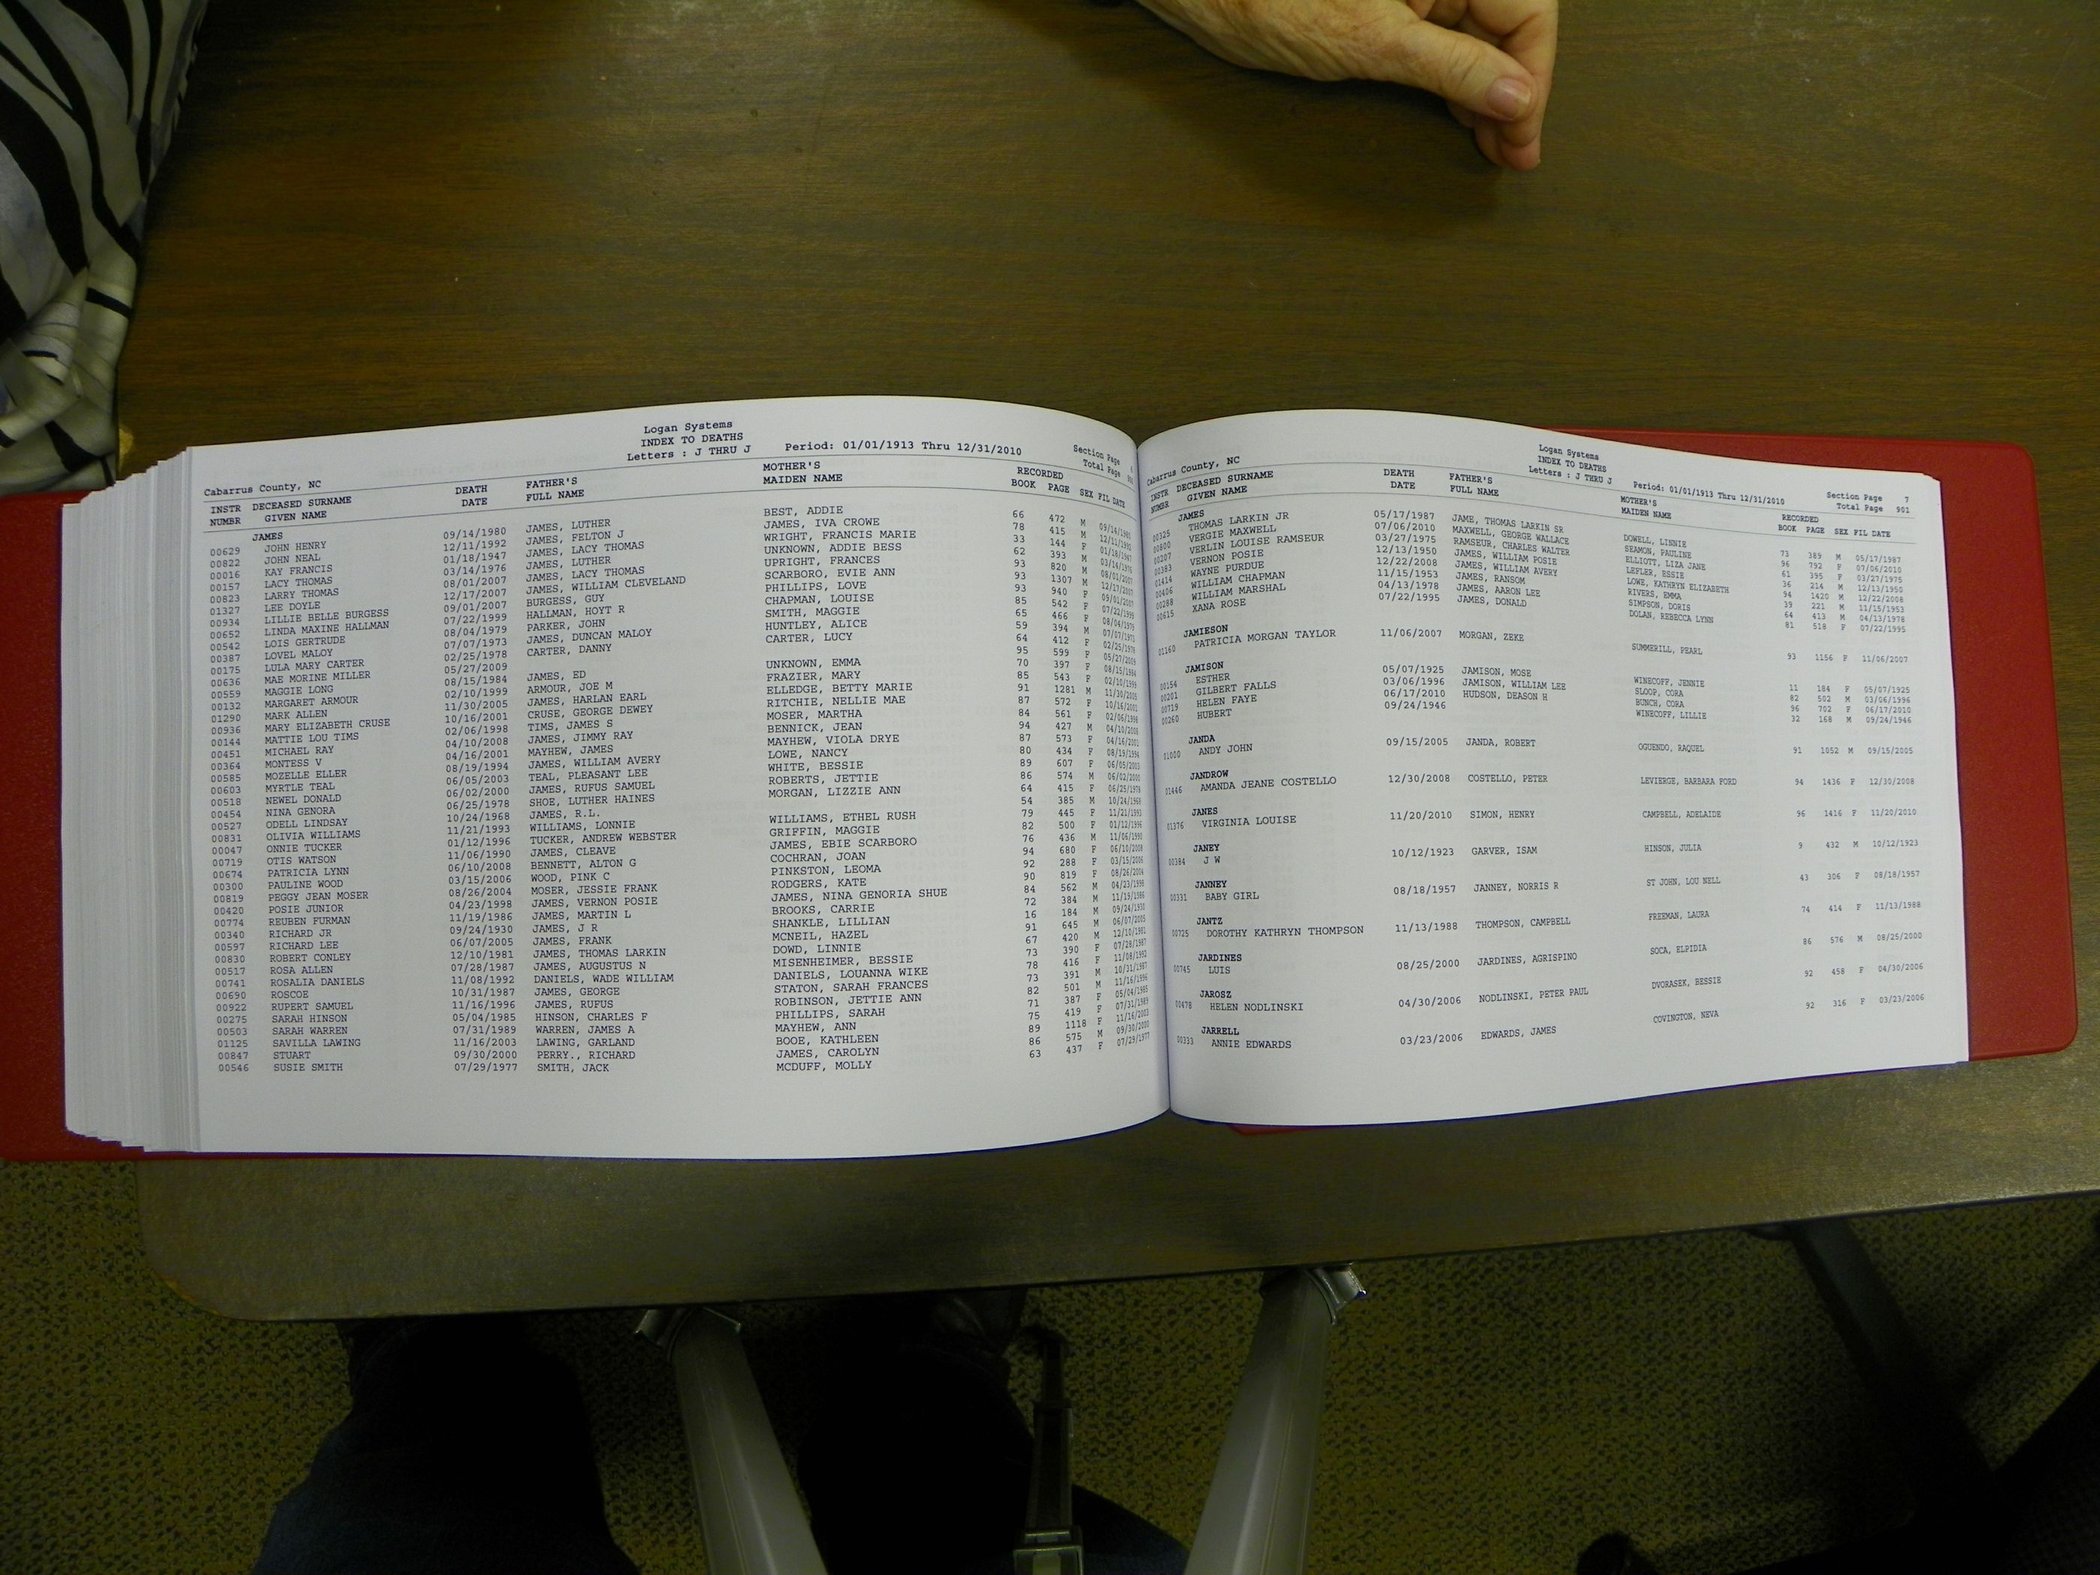 Logan Systems
INDEX TO DEATHS
Letters : J THRU J Period: 01/01/1913 Thru 12/31/2010
Section Page
Total Page
Cabarrus County, NC
INSTR DECEASED SURNAME DEATH FATHER'S MOTHER'S RECORDED
NUMBR GIVEN NAME DATE FULL NAME MAIDEN NAME BOOK PAGE SEX FIL DATE
JAMES
00629 JOHN HENRY 09/14/1980 JAMES, LUTHER BEST, ADDIE 66 472 M 09/14/1980
00822 JOHN NEAL 12/11/1992 JAMES, FELTON J JAMES, IVA CROWE 78 415 M 12/11/1992
00016 KAY FRANCIS 01/18/1947 JAMES, LACY THOMAS WRIGHT, FRANCIS MARIE 33 144 F 01/18/1947
00157 LACY THOMAS 03/14/1976 JAMES, LUTHER UNKNOWN, ADDIE BESS 62 393 M 03/14/1976
00823 LARRY THOMAS 08/01/2007 JAMES, LACY THOMAS UPRIGHT, FRANCES 93 820 M 08/01/2007
01327 LEE DOYLE 12/17/2007 JAMES, WILLIAM CLEVELAND SCARBORO, EVIE ANN 93 1307 M 12/17/2007
00934 LILLIE BELLE BURGESS 09/01/2007 BURGESS, GUY PHILLIPS, LOVE 93 940 F 09/01/2007
00652 LINDA MAXINE HALLMAN 07/22/1999 HALLMAN, HOYT R CHAPMAN, LOUISE 85 542 F 07/22/1999
00542 LOIS GERTRUDE 08/04/1979 PARKER, JOHN SMITH, MAGGIE 65 466 F 08/04/1979
00387 LOVEL MALOY 07/07/1973 JAMES, DUNCAN MALOY HUNTLEY, ALICE 59 394 M 07/07/1973
00175 LULA MARY CARTER 02/25/1978 CARTER, DANNY CARTER, LUCY 64 412 F 02/25/1978
00636 MAE MORINE MILLER 05/27/2009 95 599 F 05/27/2009
00559 MAGGIE LONG 08/15/1984 JAMES, ED UNKNOWN, EMMA 70 397 F 08/15/1984
00132 MARGARET ARMOUR 02/10/1999 ARMOUR, JOE M FRAZIER, MARY 85 543 F 02/10/1999
01290 MARK ALLEN 11/30/2005 JAMES, HARLAN EARL ELLEDGE, BETTY MARIE 91 1281 M 11/30/2005
00936 MARY ELIZABETH CRUSE 10/16/2001 CRUSE, GEORGE DEWEY RITCHIE, NELLIE MAE 87 572 F 10/16/2001
00144 MATTIE LOU TIMS 02/06/1998 TIMS, JAMES S MOSER, MARTHA 84 561 F 02/06/1998
00451 MICHAEL RAY 04/10/2008 JAMES, JIMMY RAY BENNICK, JEAN 94 427 M 04/10/2008
00364 MONTESS V 04/16/2001 MAYHEW, JAMES MAYHEW, VIOLA DRYE 87 573 F 04/16/2001
00585 MOZELLE ELLER 08/19/1994 JAMES, WILLIAM AVERY LOWE, NANCY 80 434 F 08/19/1994
00603 MYRTLE TEAL 06/05/2003 TEAL, PLEASANT LEE WHITE, BESSIE 89 607 F 06/05/2003
00518 NEWEL DONALD 06/02/2000 JAMES, RUFUS SAMUEL ROBERTS, JETTIE 86 574 M 06/02/2000
00454 NINA GENORA 06/25/1978 SHOE, LUTHER HAINES MORGAN, LIZZIE ANN 64 415 F 06/25/1978
00527 ODELL LINDSAY 10/24/1968 JAMES, R.L. 54 385 M 10/24/1968
00831 OLIVIA WILLIAMS 11/21/1993 WILLIAMS, LONNIE WILLIAMS, ETHEL RUSH 79 445 F 11/21/1993
00047 ONNIE TUCKER 01/12/1996 TUCKER, ANDREW WEBSTER GRIFFIN, MAGGIE 82 500 F 01/12/1996
00719 OTIS WATSON 11/06/1990 JAMES, CLEAVE JAMES, EBIE SCARBORO 76 436 M 11/06/1990
00674 PATRICIA LYNN 06/10/2008 BENNETT, ALTON G COCHRAN, JOAN 94 680 F 06/10/2008
00300 PAULINE WOOD 03/15/2006 WOOD, PINK C PINKSTON, LEOMA 92 288 F 03/15/2006
00819 PEGGY JEAN MOSER 08/26/2004 MOSER, JESSIE FRANK RODGERS, KATE 90 819 F 08/26/2004
00420 POSIE JUNIOR 04/23/1998 JAMES, VERNON POSIE JAMES, NINA GENORIA SHUE 84 562 M 04/23/1998
00774 REUBEN FURMAN 11/19/1986 JAMES, MARTIN L BROOKS, CARRIE 72 384 M 11/19/1986
00340 RICHARD JR 09/24/1930 JAMES, J R SHANKLE, LILLIAN 16 184 M 09/24/1930
00597 RICHARD LEE 06/07/2005 JAMES, FRANK MCNEIL, HAZEL 91 645 M 06/07/2005
00830 ROBERT CONLEY 12/10/1981 JAMES, THOMAS LARKIN DOWD, LINNIE 67 420 M 12/10/1981
00517 ROSA ALLEN 07/28/1987 JAMES, AUGUSTUS N MISENHEIMER, BESSIE 73 390 F 07/28/1987
00741 ROSALIA DANIELS 11/08/1992 DANIELS, WADE WILLIAM DANIELS, LOUANNA WIKE 78 416 F 11/08/1992
00690 ROSCOE 10/31/1987 JAMES, GEORGE STATON, SARAH FRANCES 73 391 M 10/31/1987
00922 RUPERT SAMUEL 11/16/1996 JAMES, RUFUS ROBINSON, JETTIE ANN 82 501 M 11/16/1996
00275 SARAH HINSON 05/04/1985 HINSON, CHARLES F PHILLIPS, SARAH 71 387 F 05/04/1985
00503 SARAH WARREN 07/31/1989 WARREN, JAMES A MAYHEW, ANN 75 419 F 07/31/1989
01125 SAVILLA LAWING 11/16/2003 LAWING, GARLAND BOOE, KATHLEEN 89 1118 F 11/16/2003
00847 STUART 09/30/2000 PERRY., RICHARD JAMES, CAROLYN 86 575 M 09/30/2000
00546 SUSIE SMITH 07/29/1977 SMITH, JACK MCDUFF, MOLLY 63 437 F 07/29/1977
Logan Systems
INDEX TO DEATHS
Letters : J THRU J Period: 01/01/1913 Thru 12/31/2010
Section Page 7
Total Page 901
Cabarrus County, NC
INSTR DECEASED SURNAME DEATH FATHER'S MOTHER'S RECORDED
NUMBR GIVEN NAME DATE FULL NAME MAIDEN NAME BOOK PAGE SEX FIL DATE
JAMES
00325 THOMAS LARKIN JR 05/17/1987 JAME, THOMAS LARKIN SR DOWELL, LINNIE 73 389 M 05/17/1987
00800 VERGIE MAXWELL 07/06/2010 MAXWELL, GEORGE WALLACE SEAMON, PAULINE 96 792 F 07/06/2010
00207 VERLIN LOUISE RAMSEUR 03/27/1975 RAMSEUR, CHARLES WALTER ELLIOTT, LIZA JANE 61 395 F 03/27/1975
00383 VERNON POSIE 12/13/1950 JAMES, WILLIAM POSIE LEFLER, ESSIE 36 214 M 12/13/1950
01414 WAYNE PURDUE 12/22/2008 JAMES, WILLIAM AVERY LOWE, KATHRYN ELIZABETH 94 1420 M 12/22/2008
00406 WILLIAM CHAPMAN 11/15/1953 JAMES, RANSOM RIVERS, EMMA 39 221 M 11/15/1953
00288 WILLIAM MARSHAL 04/13/1978 JAMES, AARON LEE SIMPSON, DORIS 64 413 M 04/13/1978
00615 XANA ROSE 07/22/1995 JAMES, DONALD DOLAN, REBECCA LYNN 81 518 F 07/22/1995
JAMIESON
01160 PATRICIA MORGAN TAYLOR 11/06/2007 MORGAN, ZEKE SUMMERILL, PEARL 93 1156 F 11/06/2007
JAMISON
00154 ESTHER 05/07/1925 JAMISON, MOSE WINECOFF, JENNIE 11 184 F 05/07/1925
00201 GILBERT FALLS 03/06/1996 JAMISON, WILLIAM LEE SLOOP, CORA 82 502 M 03/06/1996
00719 HELEN FAYE 06/17/2010 HUDSON, DEASON H BUNCH, CORA 96 702 F 06/17/2010
00260 HUBERT 09/24/1946 WINECOFF, LILLIE 32 168 M 09/24/1946
JANDA
01000 ANDY JOHN 09/15/2005 JANDA, ROBERT OGUENDO, RAQUEL 91 1052 M 09/15/2005
JANDROW
01446 AMANDA JEANE COSTELLO 12/30/2008 COSTELLO, PETER LEVIERGE, BARBARA FORD 94 1436 F 12/30/2008
JANES
01376 VIRGINIA LOUISE 11/20/2010 SIMON, HENRY CAMPBELL, ADELAIDE 96 1416 F 11/20/2010
JANEY
00384 J W 10/12/1923 GARVER, ISAM HINSON, JULIA 9 432 M 10/12/1923
JANNEY
00331 BABY GIRL 08/18/1957 JANNEY, NORRIS R ST JOHN, LOU NELL 43 306 F 08/18/1957
JANTZ
00725 DOROTHY KATHRYN THOMPSON 11/13/1988 THOMPSON, CAMPBELL FREEMAN, LAURA 74 414 F 11/13/1988
JARDINES
00745 LUIS 08/25/2000 JARDINES, AGRISPINO SOCA, ELPIDIA 86 576 M 08/25/2000
JAROSZ
00478 HELEN NODLINSKI 04/30/2006 NODLINSKI, PETER PAUL DVORASEK, BESSIE 92 458 F 04/30/2006
JARRELL
00333 ANNIE EDWARDS 03/23/2006 EDWARDS, JAMES COVINGTON, NEVA 92 316 F 03/23/2006